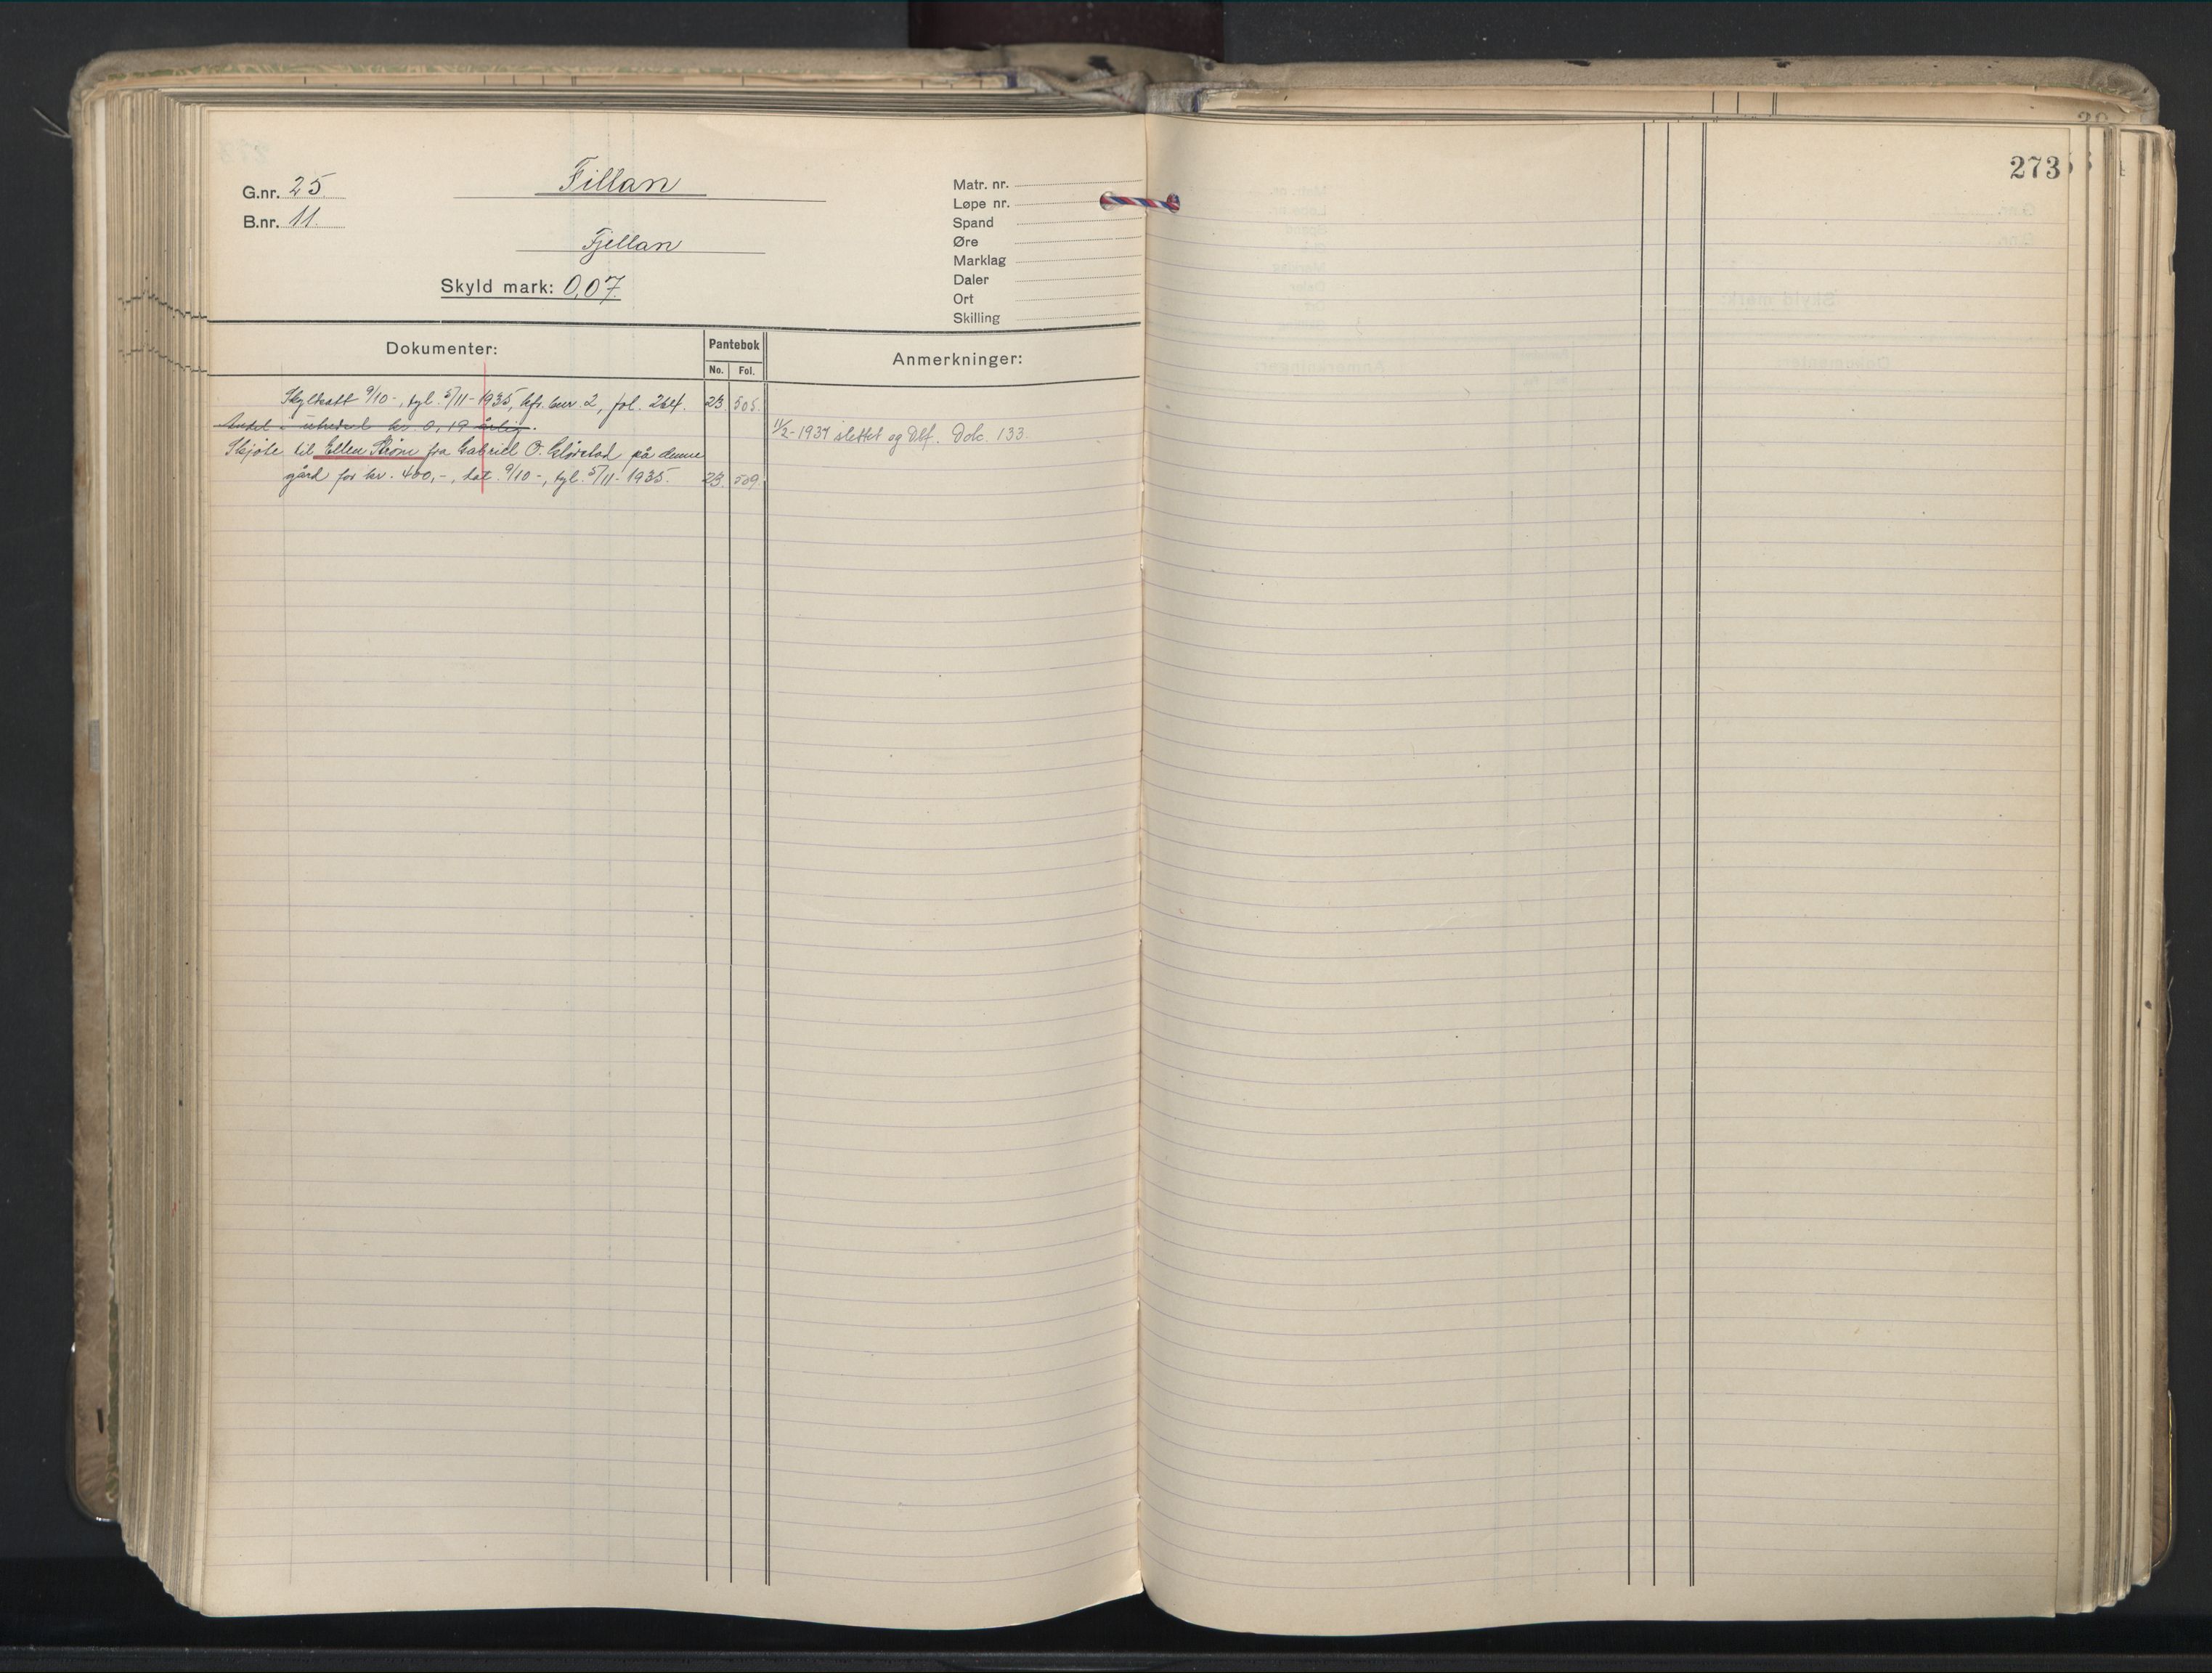 273
G.nr. 25
B.nr. 11.
Fillan
Fjellan
Skyld mark: 0,07
Matr. nr.
Løpe nr.
Spand
Øre
Marklag
Daler
Ort
Skilling
Dokumenter:
Pantebok
No. Fol.
Anmerkninger:
Skyldsatt 9/10-, tgl. 5/11-1935, kfr. bnr. 2, fol. 264. 23. 505.
Andel i utredsel kr. 0,19 årlig.
11/2-1937 slettet og Dlf. Dok. 133.
Skjøte til Ellen Strøm fra Gabriel O. på denne
gård for kr. 400,-, dat. 9/10-, tgl. 5/11-1935. 23. 509.